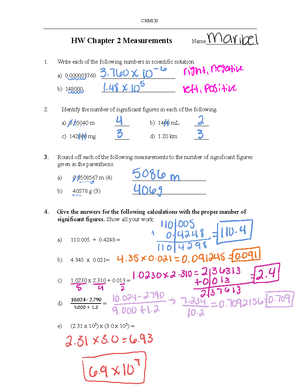 CHM130
HW Chapter 2 Measurements Name Maribel
1. Write each of the following numbers in scientific notation
a) 0.000003760 3.760 x 10⁻⁶ right, negative
b) 148000 1.48 x 10⁵ left, positive
2. Identify the number of significant figures in each of the following.
4 b) 2
3 d) 1.20 km 3
3. Round off each of the following measurements to the number of significant figures
given in the parenthesis:
a) (4) 5086 m
b) 40578 g (3) 406
4. Give the answers for the following calculations with the proper number of
significant figures. Show all your work.
110.005
0.4248
110.4298 = 110.4
a) 110.005 + 0.4248 =
b) 4.345 x 0.021 = 4.35 x 0.021 = 0.091245 = 0.091
c) 1.0230 x 2.310 + 0.013 = 1.0230 x 2.310 = 2.36313
5 4 2 + 0.013
2.37613 = 2.4
d) 10.024 - 2.790 10.024 - 2.790 7.234 = 0.7092156 0.709
9.000 + 1.2 9.000 + 1.2 10.2
e) (2.31 x 10⁵) x (3.0 x 10²) =
2.31 x 3.0 = 6.93
6.9 x 10⁷